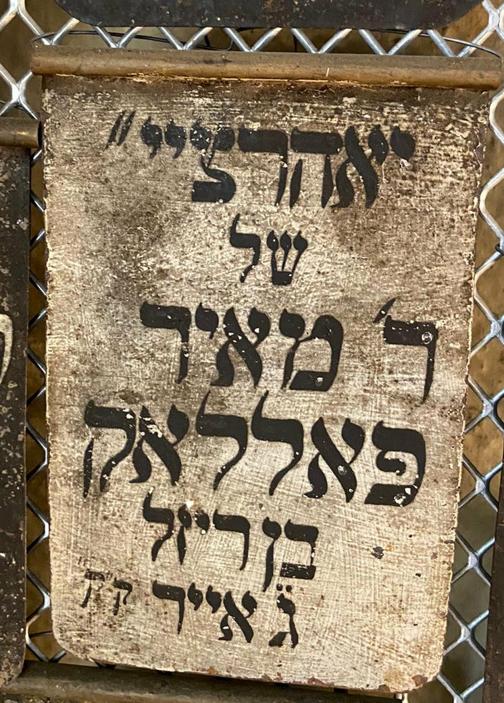 יאהרציי״
של
ר' מאיר
פאללאק
בן ריזל
ג̈ אייר